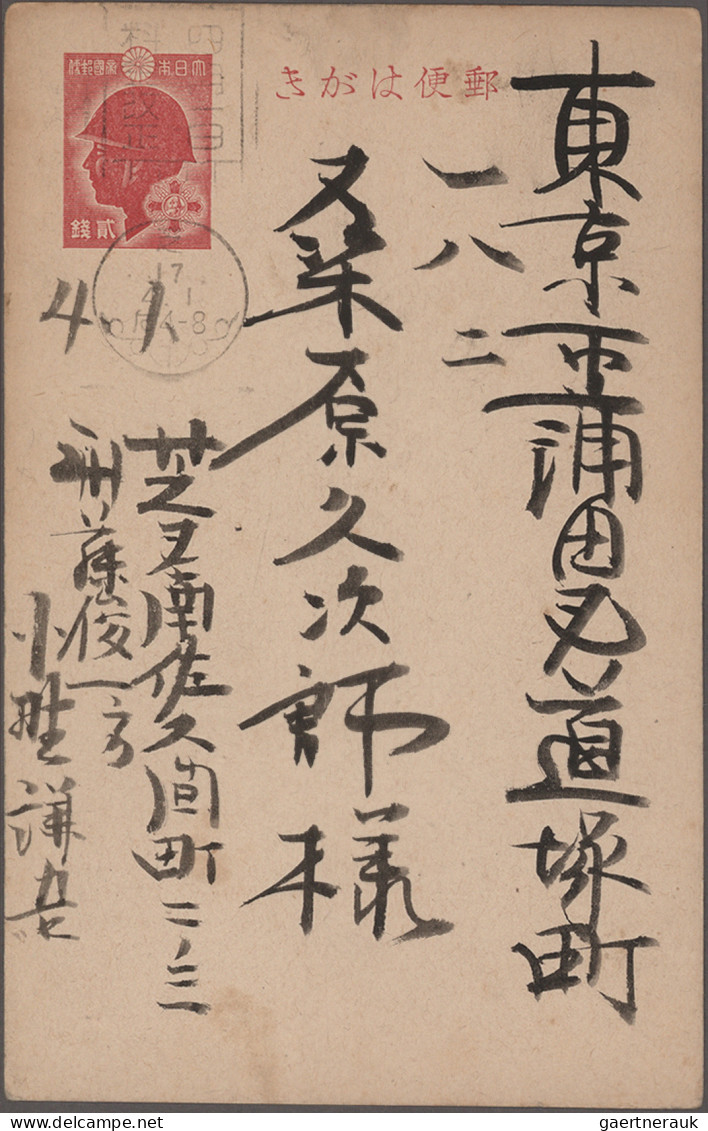 郵便はがき
大日本帝國郵便
貳錢
17
4 1
4-8
東京市蒲田区道塚町
一八二
桑原久次郎様
4 1
芝区南佐久間町二ノ三
藤俊一方
小野謙
gaertnerauk